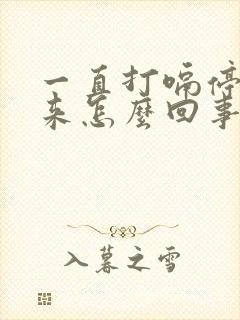 一直打嗝停
来怎麼回事
入暮之雪